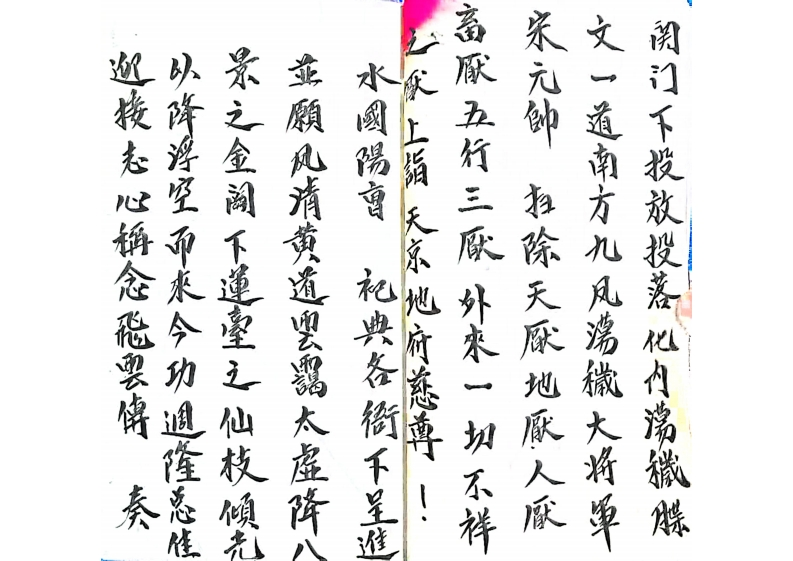 関门下投放投落化内蕩穢牒
文一道南方九风蕩穢大将軍
宋元帥 扫除天厭地厭人厭
畜厭五行三厭外來一切不祥
之厭上詣天京地府慈尊！
水國陽 祀典各衙下呈進
並願风清黄道雲靄太虚降八
景之金闕下運臺之仙枝傾光
以降浮空而來今功週隆总焦
迎接志心稱念飛雲傳 奏